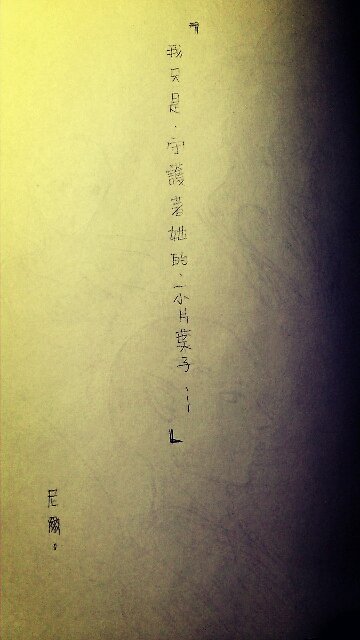 『我只是．守護著她的．一小片葉子……』
尼爾。